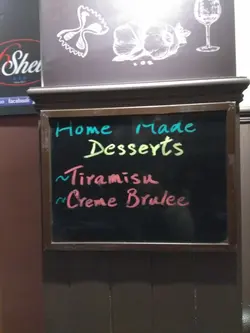 Shel
facebook
Home Made
Desserts
~Tiramisu
~Creme Brulee